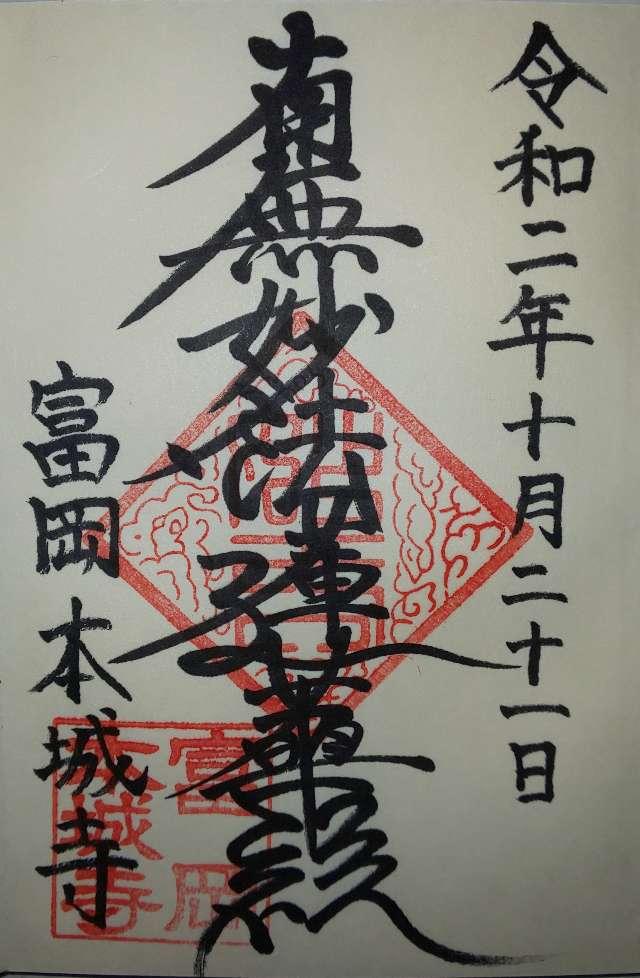 令和二年十月二十一日
南無妙法蓮華経
富岡本城寺
富岡
本城寺